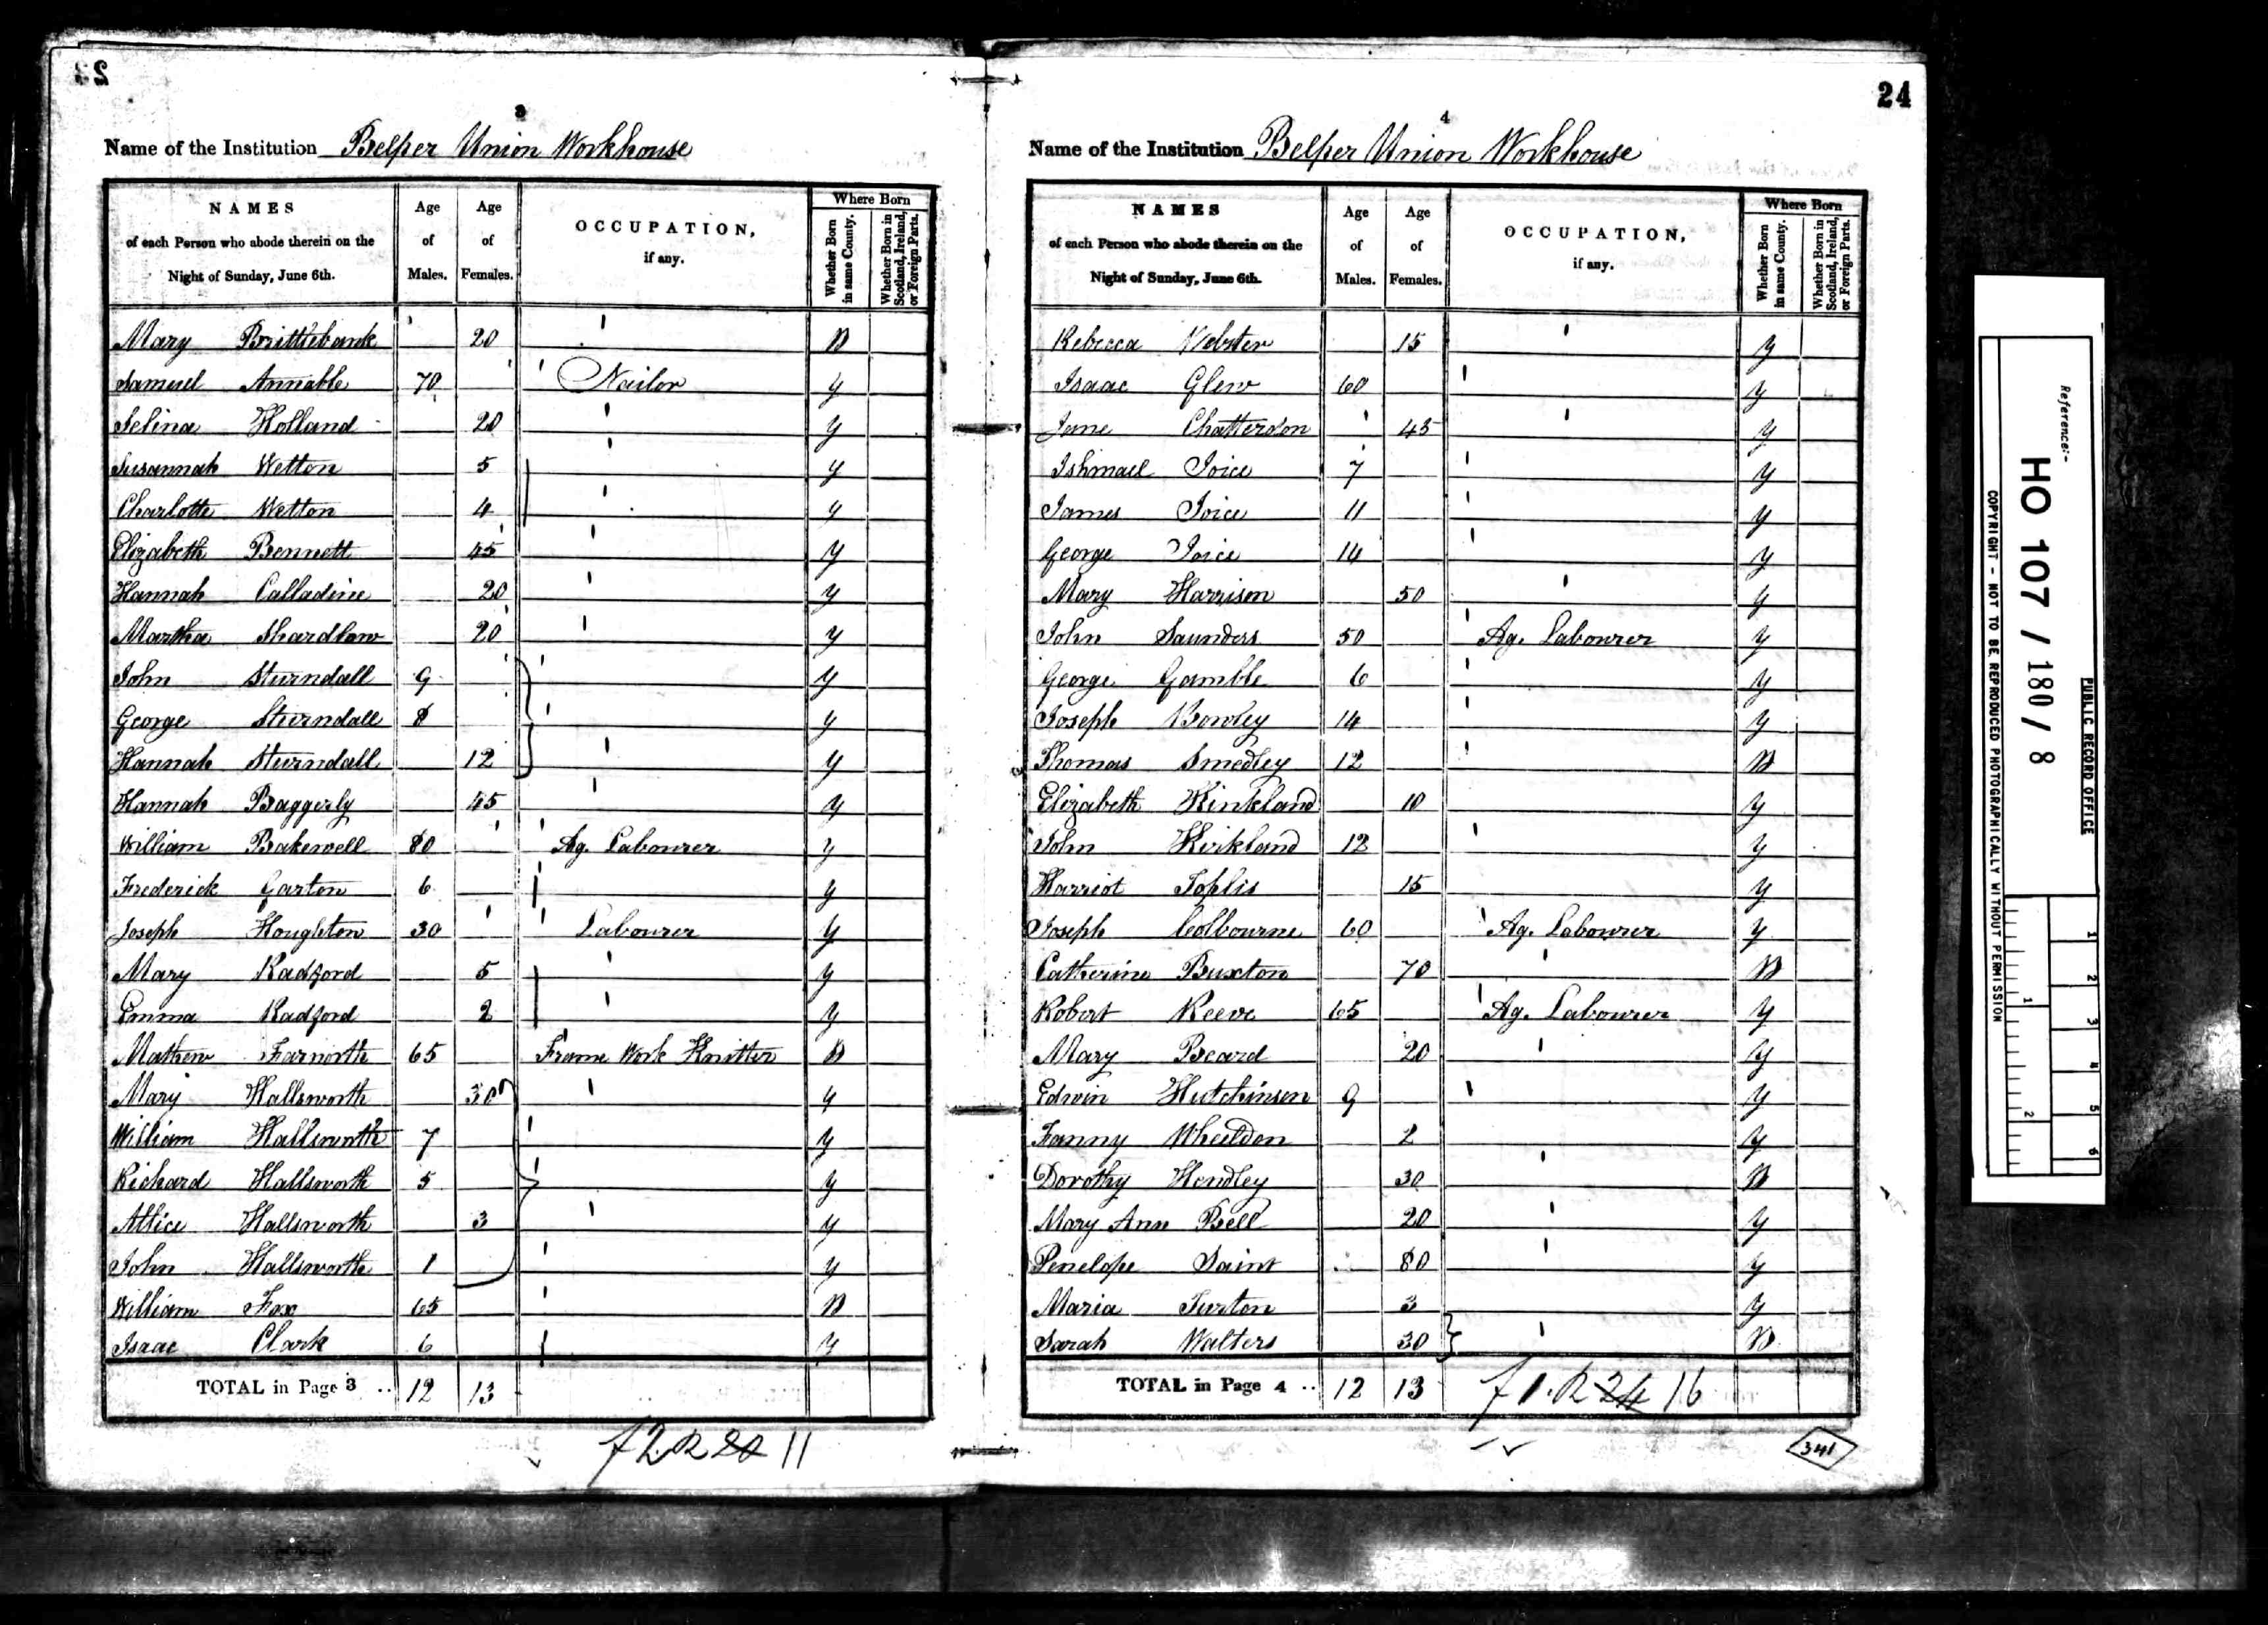 23
3
Name of the Institution Belper Union Workhouse
NAMES of each Person who abode therein on the Night of Sunday, June 6th. Age of Males. Age of Females. OCCUPATION, if any. Where Born Whether Born in same County. Whether Born in Scotland, Ireland, or Foreign Parts.
Mary Brittlebank 20 N
Samuel Annable 70 Nailor y
Selina Holland 20 y
Susannah Wetton 5 y
Charlotte Wetton 4 y
Elizabeth Bennett 45 y
Hannah Calladine 20 y
Martha Shardlow 20 y
John Sturndall 9 y
George Sturndall 8 y
Hannah Sturndall 12 y
Hannah Baggerly 45 y
William Bakewell 80 Ag. Labourer y
Frederick Garton 6 y
Joseph Houghton 30 Labourer y
Mary Radford 5 y
Emma Radford 2 y
Mathew Farnorth 65 Frame Work Knitter N
Mary Hallsworth 30 y
William Hallsworth 7 y
Richard Hallsworth 5 y
Allice Hallsworth 3 y
John Hallsworth 1 y
William Fox 65 N
Isaac Clark 6 y
TOTAL in Page 3 .. 12 13
11
24
4
Name of the Institution Belper Union Workhouse
NAMES of each Person who abode therein on the Night of Sunday, June 6th. Age of Males. Age of Females. OCCUPATION, if any. Where Born Whether Born in same County. Whether Born in Scotland, Ireland, or Foreign Parts.
Rebecca Webster 15 y
Isaac Glew 60 y
Jane Chatterdon 45 y
Ishmael Joice 7 y
James Joice 11 y
George Joice 14 y
Mary Harrison 50 y
John Saunders 50 Ag. Labourer y
George Gamble 6 y
Joseph Bowley 14 y
Thomas Smedley 12 N
Elizabeth Kirkland 10 y
John Kirkland 12 y
Harriot Toplis 15 y
Joseph Colbourne 60 Ag. Labourer y
Catherine Buxton 70 N
Robert Reeve 65 Ag. Labourer y
Mary Beard 20 y
Edwin Hutchinson 9 y
Fanny Wheeldon 2 y
Dorothy Hendley 30 N
Mary Ann Bell 20 y
Penelope Saint 80 y
Maria Turton 3 y
Sarah Walters 30 N
TOTAL in Page 4 .. 12 13 24 16
341
Reference:-
HO 107 / 180 / 8
PUBLIC RECORD OFFICE
COPYRIGHT - NOT TO BE REPRODUCED PHOTOGRAPHICALLY WITHOUT PERMISSION
1 2 3 4 5 6
1 2